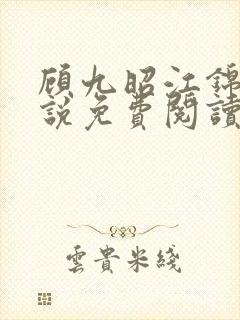 顾九昭江錦
說免費閱讀
雲貴米綫